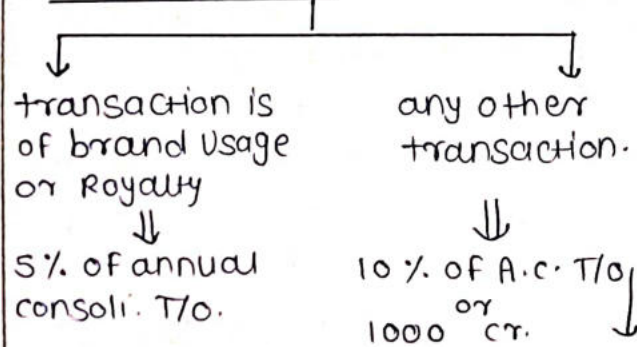 transaction is
of brand usage
or Royalty
⇓
5% of annual
consoli. T/O.
any other
transaction.
⇓
10 % of A.C. T/O
or
1000 cr. ↓